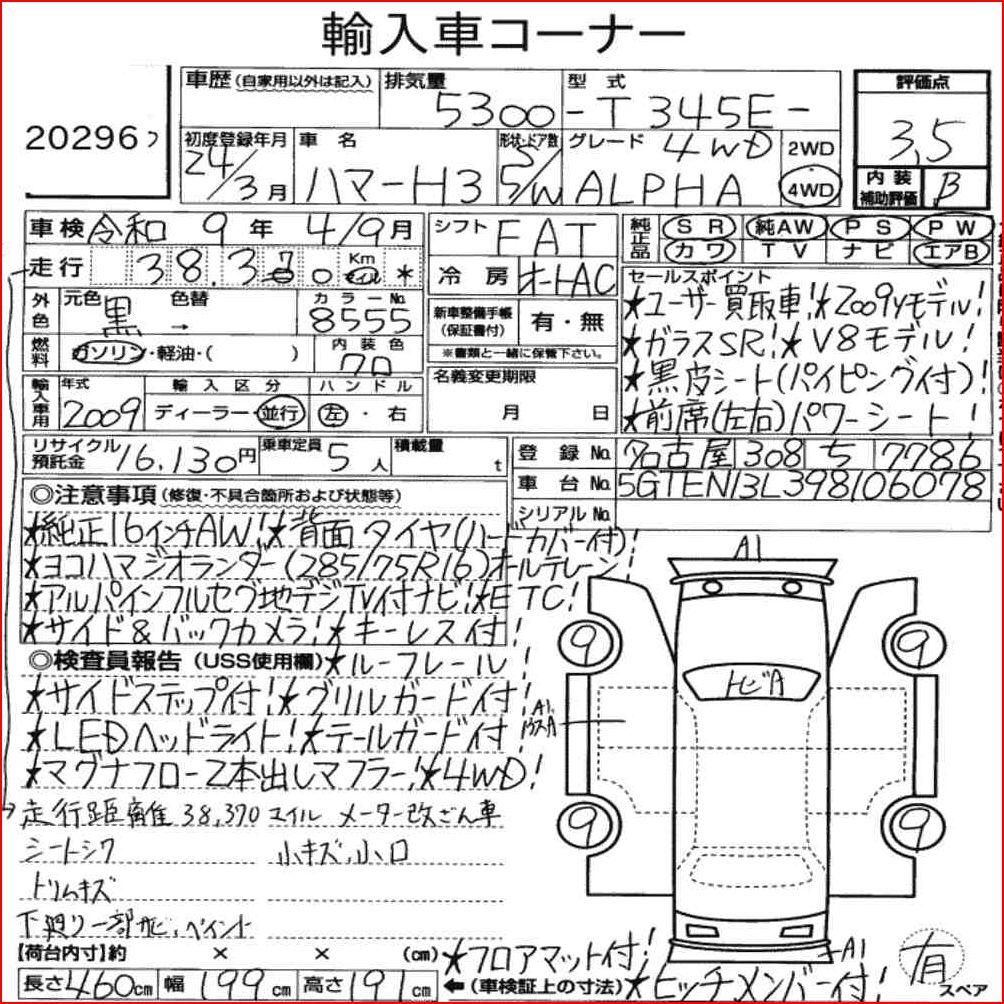 輸入車コーナー
20296
車歴 (自家用以外は記入)
排気量 5300
型式 -T345E-
評価点 3,5
初度登録年月 24/3月
車名 ハマーH3
形状・ドア数 5/W
グレード 4WD ALPHA
2WD
4WD
内装補助評価 B
車検 令和 9年 4/9月
シフト FAT
純正品 SR 純AW PS PW
カワ TV ナビ エアB
走行 38,370 Km マイル *
冷房 オートAC
セールスポイント
★ユーザー買取車!★2009yモデル!
★ガラスSR!★V8モデル!
★黒皮シート(パイピング付)!
★前席(左右)パワーシート!
外色 元色 黒 → 色替
カラーNo. 8555
新車整備手帳(保証書付) 有・無
※書類と一緒に保管下さい。
燃料 ガソリン・軽油・( )
内装色 クロ
輸入車用 年式 2009
輸入区分 ディーラー・並行
ハンドル 左・右
名義変更期限 月 日
リサイクル預託金 16,130円
乗車定員 5人
積載量 t
登録No. 名古屋 308 ち 7786
車台No. 5GTEN13L398106078
シリアルNo.
◎注意事項 (修復・不具合箇所および状態等)
★純正16インチAW!★背面タイヤ(ハードカバー付)!
★ヨコハマジオランダー(285/75R16)オールテレーン!
★アルパインフルセグ地デジTV付ナビ!★ETC!
★サイド&バックカメラ!★キーレス付!
◎検査員報告 (USS使用欄) ★ルーフレール!
★サイドステップ付!★グリルガード付!
★LEDヘッドライト!★テールガード付!
★マグナフロー2本出しマフラー!★4WD!
走行距離 38,370マイル メーター改ざん車
シートシワ 小キズ、小凹
トリムキズ
下廻り一部サビ、ペイント
【荷台内寸】約 × × (cm)
★フロアマット付!
長さ460cm 幅199cm 高さ191cm
←(車検証上の寸法)
★ヒッチメンバー付!
A1
9
9
トビA
A1
9
9
A1
有
スペア